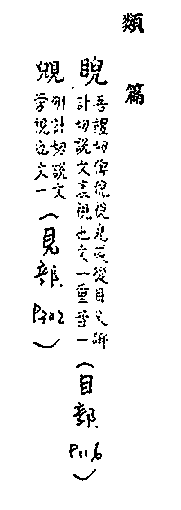 類篇
睨
吾禮切俾倪視皃或從目又研
計切說文衺視也文一重音一
(目部 P116)
計切說文
旁視也文一
(見部 P302)